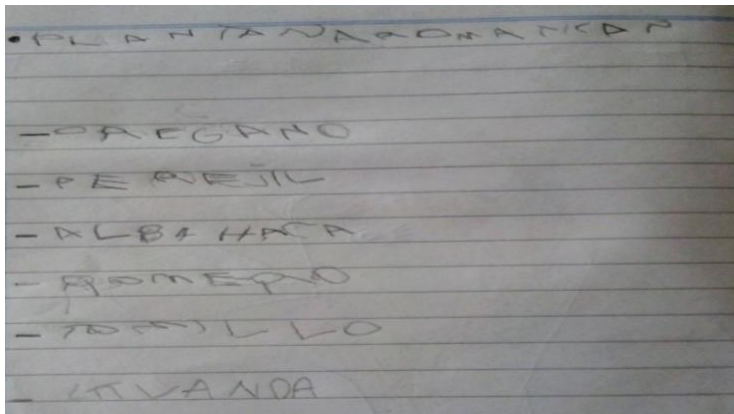 • PLANTAS AROMATICAS
- OREGANO
- PEREJIL
- ALBAHACA
- ROMERO
- TOMILLO
- LAVANDA